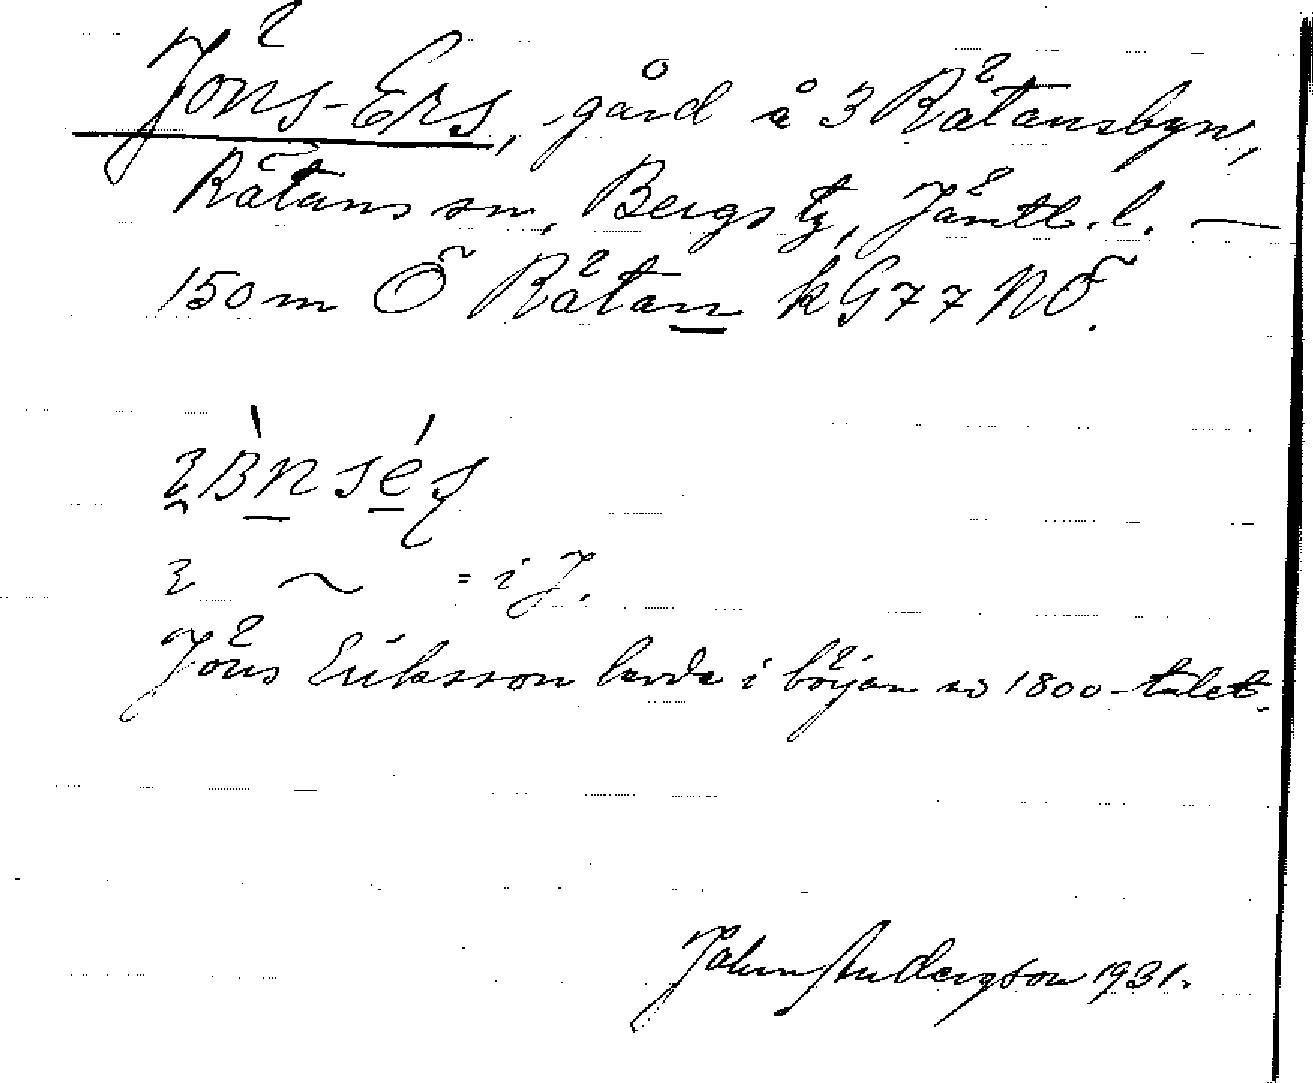 Jöns-Ers, gård å 3 Rätansbyn,
Rätans sn, Bergs tg, Jämtl. l. —
150 m Ö Rätan kG77NÖ.
= i J.
Jöns Eriksson levde i början av 1800-talet.
John Andersson 1931.